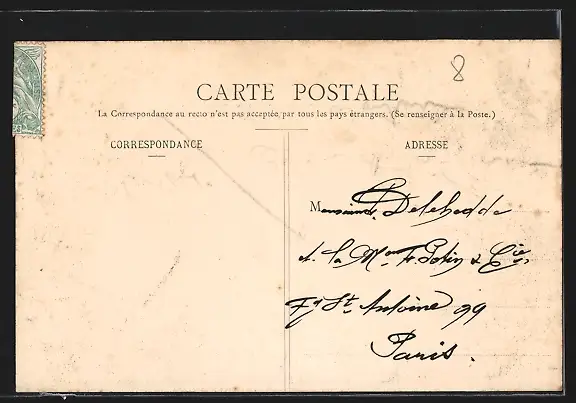 8
CARTE POSTALE
La Correspondance au recto n'est pas acceptée par tous les pays étrangers. (Se renseigner à la Poste.)
CORRESPONDANCE
ADRESSE
Monsieur Delehedde
à la Mon F. Potin & Cie
Fg St Antoine 99
Paris.